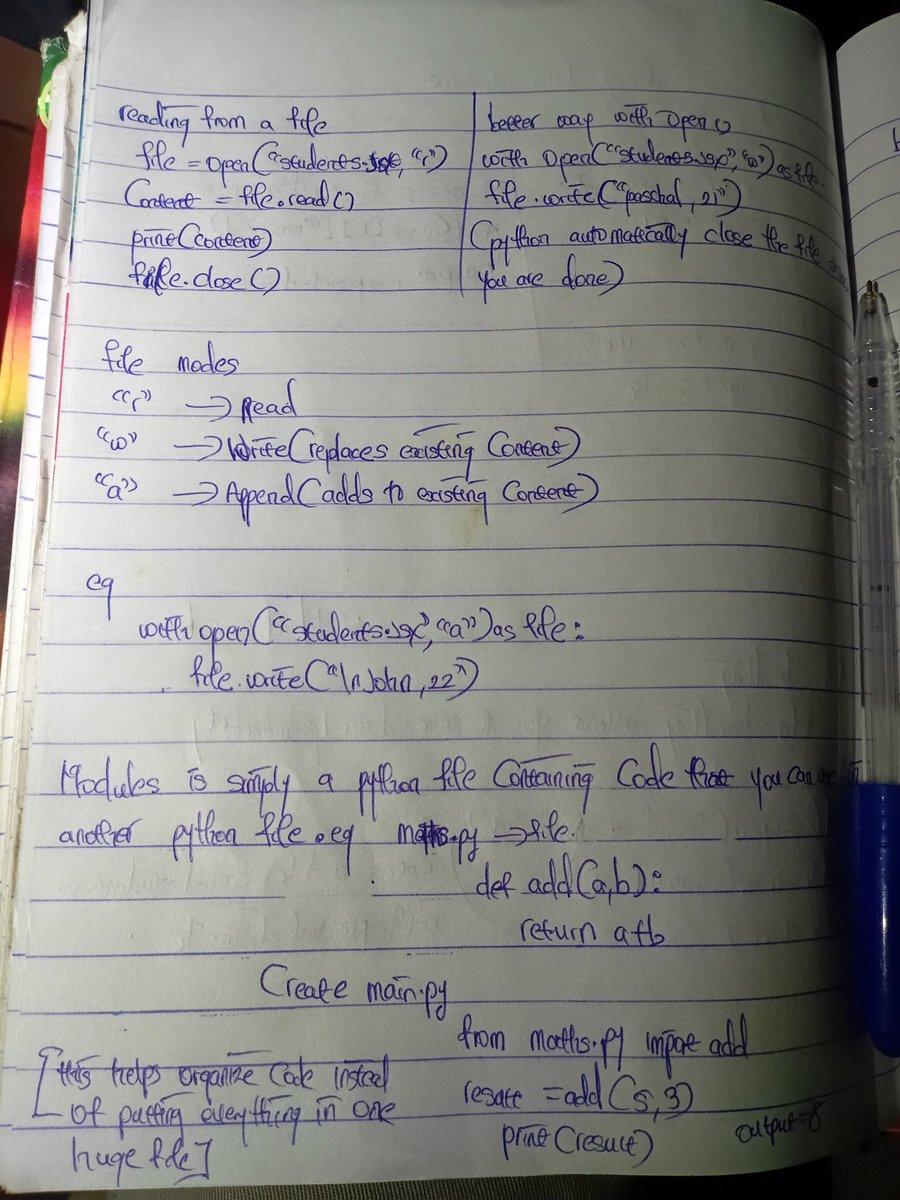 reading from a file
file = open("students.txt", "r")
Content = file.read()
print(content)
file.close()
better way with open()
with open("students.txt", "w") as file.
file.write("paschal, 21")
(python automatically close the file
you are done)
file modes
"r" → Read
"w" → Write (replaces existing Content)
"a" → Append (adds to existing Content)
eg
with open("students.txt", "a") as file:
file.write("\n John, 22")
Modules is simply a python file Containing Code that you can use in
another python file. eg maths.py → file.
def add(a,b):
return a+b
Create main.py
from maths.py import add
result = add(5,3)
print(result)
output=8
[this helps organize Code instead
of putting everything in one
huge file]